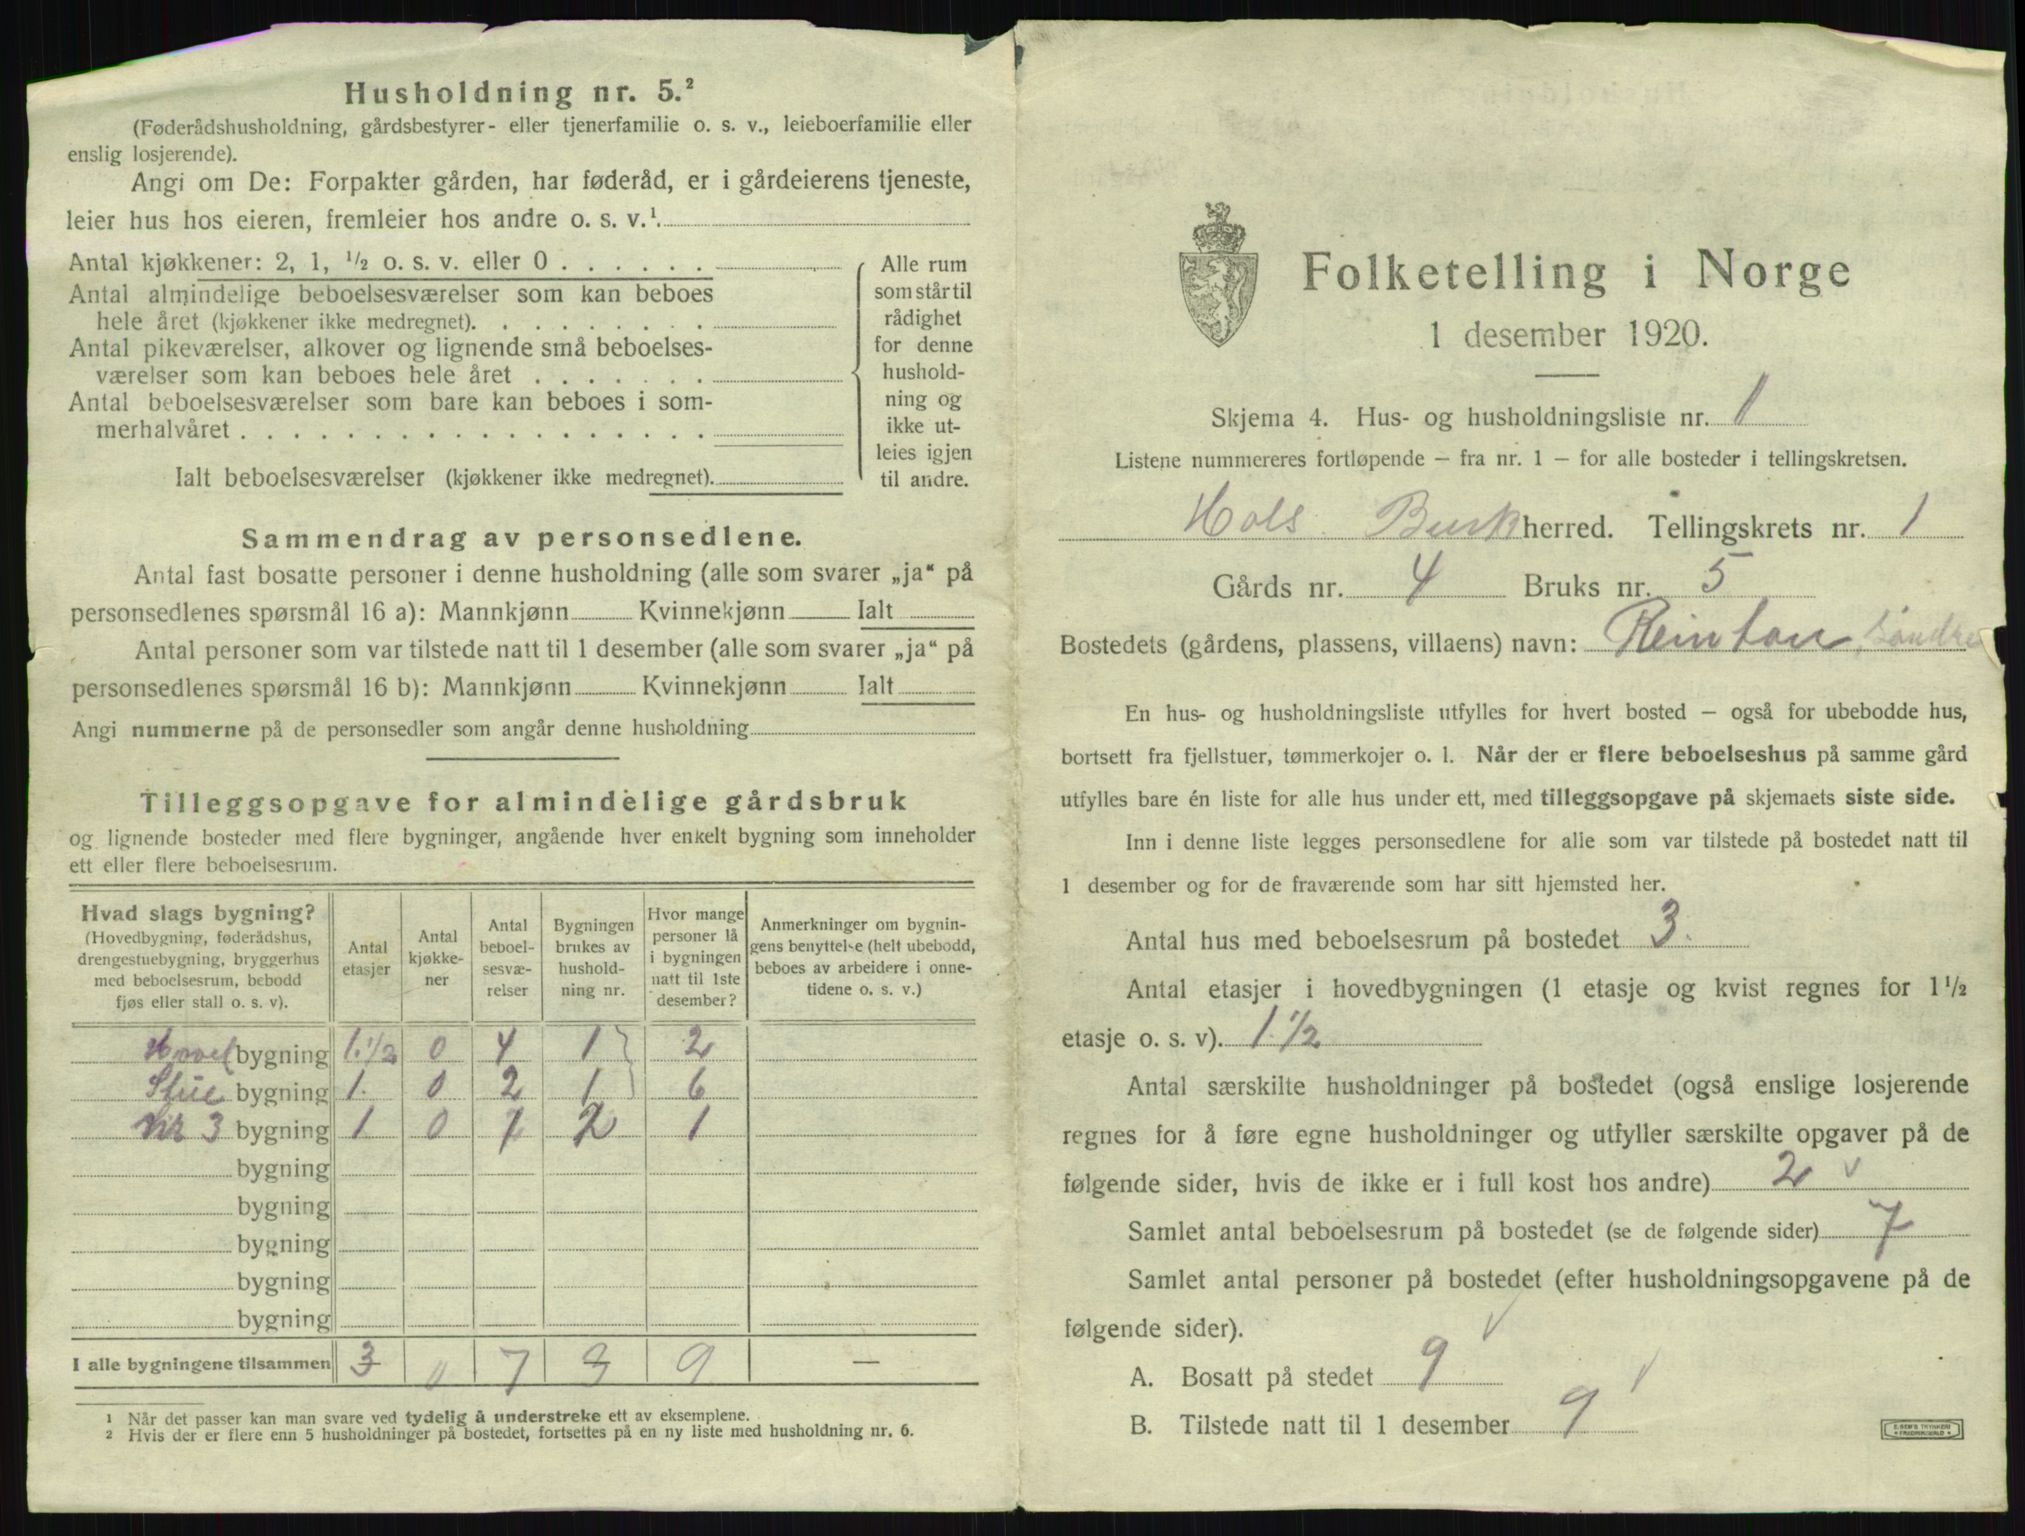 Husholdning nr. 5.²
(Føderådshusholdning, gårdsbestyrer- eller tjenerfamilie o. s. v., leieboerfamilie eller
enslig losjerende).
Angi om De: Forpakter gården, har føderåd, er i gårdeierens tjeneste,
leier hus hos eieren, fremleier hos andre o. s. v.¹
Antal kjøkkener: 2, 1, ½ o. s. v. eller 0
Antal almindelige beboelsesværelser som kan beboes
hele året (kjøkkener ikke medregnet).
Antal pikeværelser, alkover og lignende små beboelses-
værelser som kan beboes hele året
Antal beboelsesværelser som bare kan beboes i som-
merhalvåret
Ialt beboelsesværelser (kjøkkener ikke medregnet).
Alle rum
som står til
rådighet
for denne
hushold-
ning og
ikke ut-
leies igjen
til andre.
Sammendrag av personsedlene.
Antal fast bosatte personer i denne husholdning (alle som svarer „ja“ på
personsedlenes spørsmål 16 a): Mannkjønn Kvinnekjønn Ialt
Antal personer som var tilstede natt til 1 desember (alle som svarer „ja“ på
personsedlenes spørsmål 16 b): Mannkjønn Kvinnekjønn Ialt
Angi nummerne på de personsedler som angår denne husholdning
Tilleggsopgave for almindelige gårdsbruk
og lignende bosteder med flere bygninger, angående hver enkelt bygning som inneholder
ett eller flere beboelsesrum.
Hvad slags bygning?
(Hovedbygning, føderådshus,
drengestuebygning, bryggerhus
med beboelsesrum, bebodd
fjøs eller stall o. s. v).
Antal
etasjer
Antal
kjøkke-
ner
Antal
beboel-
sesvæ-
relser
Bygningen
brukes av
hushold-
ning nr.
Hvor mange
personer lå
i bygningen
natt til 1ste
desember?
Anmerkninger om bygnin-
gens benyttelse (helt ubebodd,
beboes av arbeidere i onne-
tidene o. s. v.)
Hoved bygning 1.1/2 0 4 1 2
Stue bygning 1. 0 2 1 6
Nr 3 bygning 1 0 1 2 1
bygning
bygning
bygning
bygning
bygning
I alle bygningene tilsammen 3 0 7 3 9 —
1 Når det passer kan man svare ved tydelig å understreke ett av eksemplene.
2 Hvis der er flere enn 5 husholdninger på bostedet, fortsettes på en ny liste med husholdning nr. 6.
Folketelling i Norge
1 desember 1920.
Skjema 4. Hus- og husholdningsliste nr. 1
Listene nummereres fortløpende — fra nr. 1 — for alle bosteder i tellingskretsen.
Hols Busk herred. Tellingskrets nr. 1
Gårds nr. 4 Bruks nr. 5
Bostedets (gårdens, plassens, villaens) navn: Reinton, söndre
En hus- og husholdningsliste utfylles for hvert bosted — også for ubebodde hus,
bortsett fra fjellstuer, tømmerkojer o. l. Når der er flere beboelseshus på samme gård
utfylles bare én liste for alle hus under ett, med tilleggsopgave på skjemaets siste side.
Inn i denne liste legges personsedlene for alle som var tilstede på bostedet natt til
1 desember og for de fraværende som har sitt hjemsted her.
Antal hus med beboelsesrum på bostedet 3.
Antal etasjer i hovedbygningen (1 etasje og kvist regnes for 1½
etasje o. s. v). 1.1/2
Antal særskilte husholdninger på bostedet (også enslige losjerende
regnes for å føre egne husholdninger og utfyller særskilte opgaver på de
følgende sider, hvis de ikke er i full kost hos andre) 2
Samlet antal beboelsesrum på bostedet (se de følgende sider) 7
Samlet antal personer på bostedet (efter husholdningsopgavene på de
følgende sider).
A. Bosatt på stedet 9
B. Tilstede natt til 1 desember 9